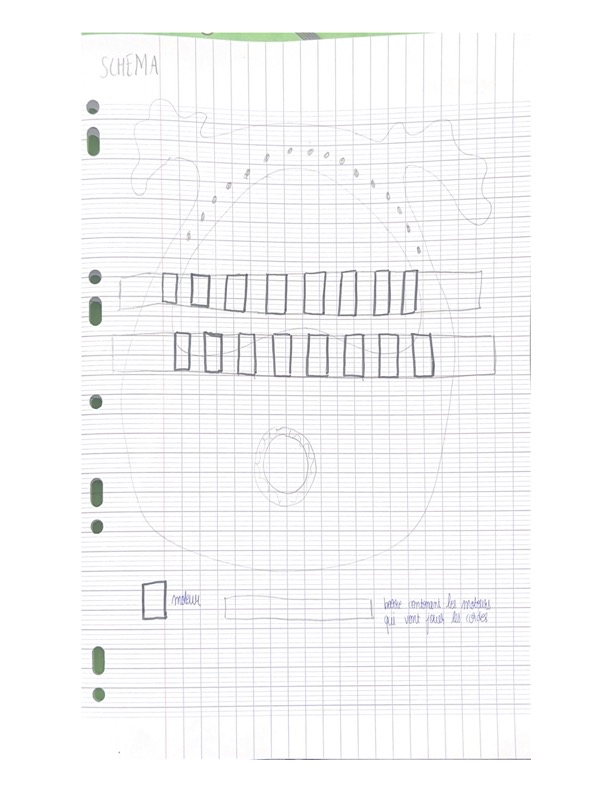 SCHEMA
moteur
barre contenant les moteurs
qui vont jouer les cordes